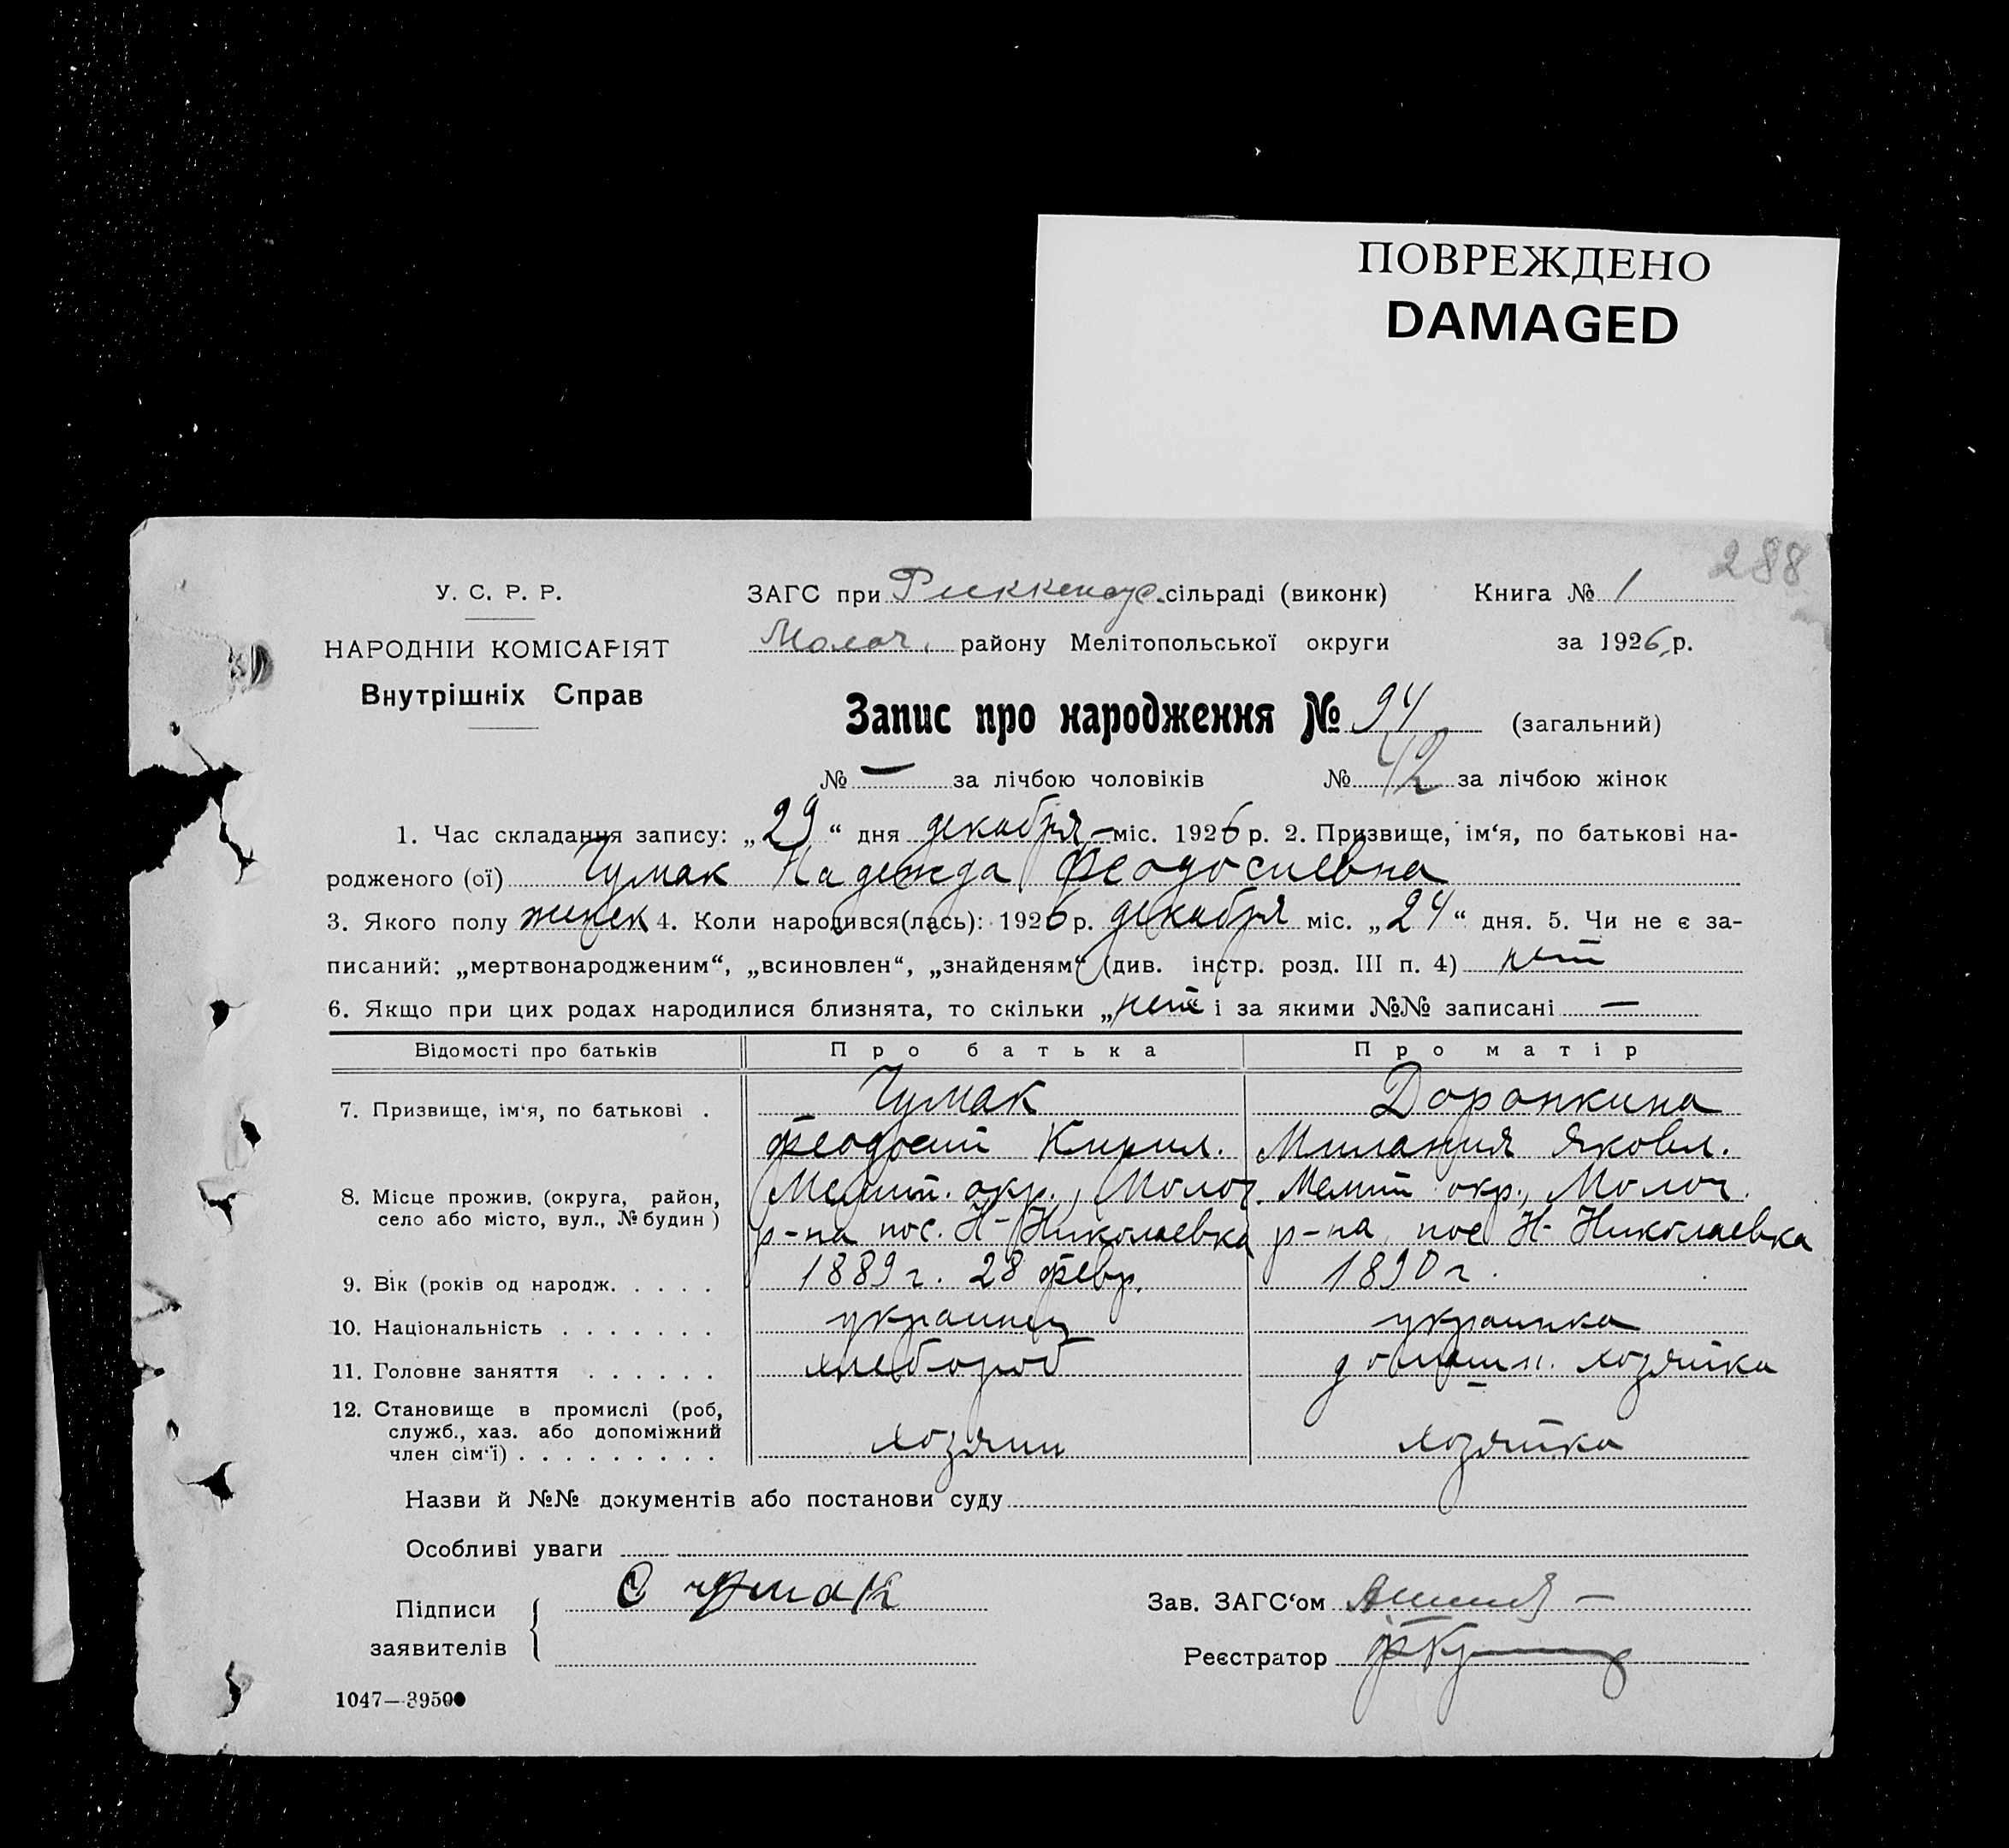 ПОВРЕЖДЕНО
DAMAGED
288
У. С. Р. Р.
ЗАГС при Риккенау. сільраді (виконк) Книга № 1
Молоч. району Мелітопольської округи за 1926, р.
НАРОДНІЙ КОМІСАРІЯТ
Внутрішніх Справ
Запис про народження № 94 (загальний)
№ — за лічбою чоловіків № 42 за лічбою жінок
1. Час складання запису: „29“ дня декабря міс. 1926 р. 2. Призвище, ім‘я, по батькові на-
родженого (ої) Чумак Надежда Феодосиевна
3. Якого полу женск 4. Коли народився(лась): 1926 р. декабря міс. „24“ дня. 5. Чи не є за-
писаний: „мертвонародженим“, „всиновлен“, „знайденям“ (див. інстр. розд. III п. 4) нет
6. Якщо при цих родах народилися близнята, то скільки „нет і за якими №№ записані —
Відомості про батьків Про батька Про матір
7. Призвище, ім‘я, по батькові . Чумак Доронкина
Феодосий Кирил. Милания Яковл.
8. Місце прожив. (округа, район, Мелит. окр., Молоч. Мелит окр., Молоч.
село або місто, вул., № будин ) р-на пос. Н-Николаевка р-на, пос Н-Николаевка
9. Вік (років од народж. . . . . 1889 г. 28 февр. 1890 г.
10. Національність . . . . . . . украинец украинка
11. Головне заняття . . . . . . хлебороб домашн. хозяйка
12. Становище в промислі (роб,
служб., хаз. або допоміжний
член сім‘ї) . . . . . . . . . хозяин хозяйка
Назви й №№ документів або постанови суду
Особливі уваги
Підписи
заявителів
чумак
Зав. ЗАГС‘ом
Реєстратор
1047—39500